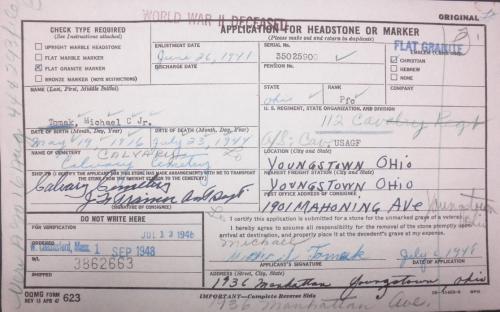 WORLD WAR II DECEASED
ORIGINAL
CHECK TYPE REQUIRED
(See Instructions attached)
APPLICATION FOR HEADSTONE OR MARKER
(Please make out and return in duplicate)
UPRIGHT MARBLE HEADSTONE
FLAT MARBLE MARKER
FLAT GRANITE MARKER
BRONZE MARKER (NOTE RESTRICTIONS)
ENLISTMENT DATE
June 26, 1941
DISCHARGE DATE
SERIAL No.
35025900
EMBLEM
FLAT GRANITE
CHRISTIAN
HEBREW
NONE
NAME (Last, First, Middle Initial)
Tomak, Michael C Jr.
STATE
Ohio
RANK
Pfc
COMPANY
U. S. REGIMENT, STATE ORGANIZATION, AND DIVISION
112 Cavalry Regt
USAGF
DATE OF BIRTH (Month, Day, Year)
May 19, 1916
DATE OF DEATH (Month, Day, Year)
July 23, 1944
NAME OF CEMETERY
CALVARY
Calvary Cemetery
LOCATION (City and State)
YOUNGSTOWN OHIO
SHIP TO (I CERTIFY THE APPLICANT FOR THIS STONE HAS MADE ARRANGEMENTS WITH ME TO TRANSPORT THE STONE FROM THE FREIGHT STATION TO THE CEMETERY)
Calvary Cemetery
(SIGNATURE OF CONSIGNEE)
NEAREST FREIGHT STATION (City and State)
YOUNGSTOWN OHIO
POST OFFICE ADDRESS OF CONSIGNEE
1901 MAHONING AVE
DO NOT WRITE HERE
FOR VERIFICATION
JUL 13 1948
ORDERED
W. Chelmsford, Mass.
1 SEP 1948
B/L
3862663
SHIPPED
I certify this application is submitted for a stone for the unmarked grave of a veteran.
I hereby agree to assume all responsibility for the removal of the stone promptly upon arrival at destination, and properly place it at the decedent's grave at my expense.
Michael
Tomak
July 6 1948
APPLICANT'S SIGNATURE
DATE
ADDRESS (Street, City, State)
1936 Manhattan Youngstown, Ohio
OQMG FORM
623
IMPORTANT—Complete Reverse Side
1936 Manhattan Ave.